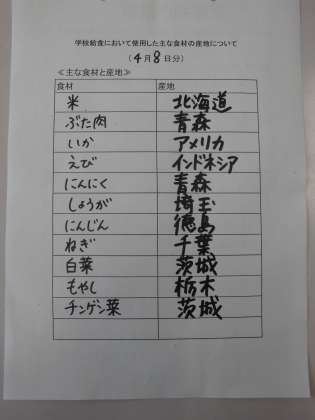 学校給食において使用した主な食材の産地について
(4月8日分)
≪主な食材と産地≫
食材 産地
米 北海道
ぶた肉 青森
いか アメリカ
えび インドネシア
にんにく 青森
しょうが 埼玉
にんじん 徳島
ねぎ 千葉
白菜 茨城
もやし 栃木
チンゲン菜 茨城